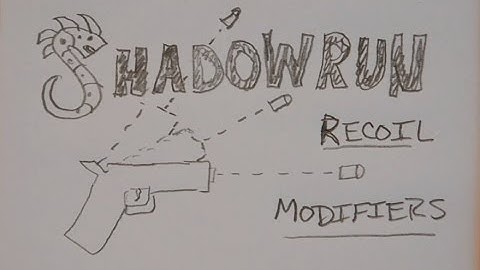 SHADOWRUN
RECOIL
MODIFIERS